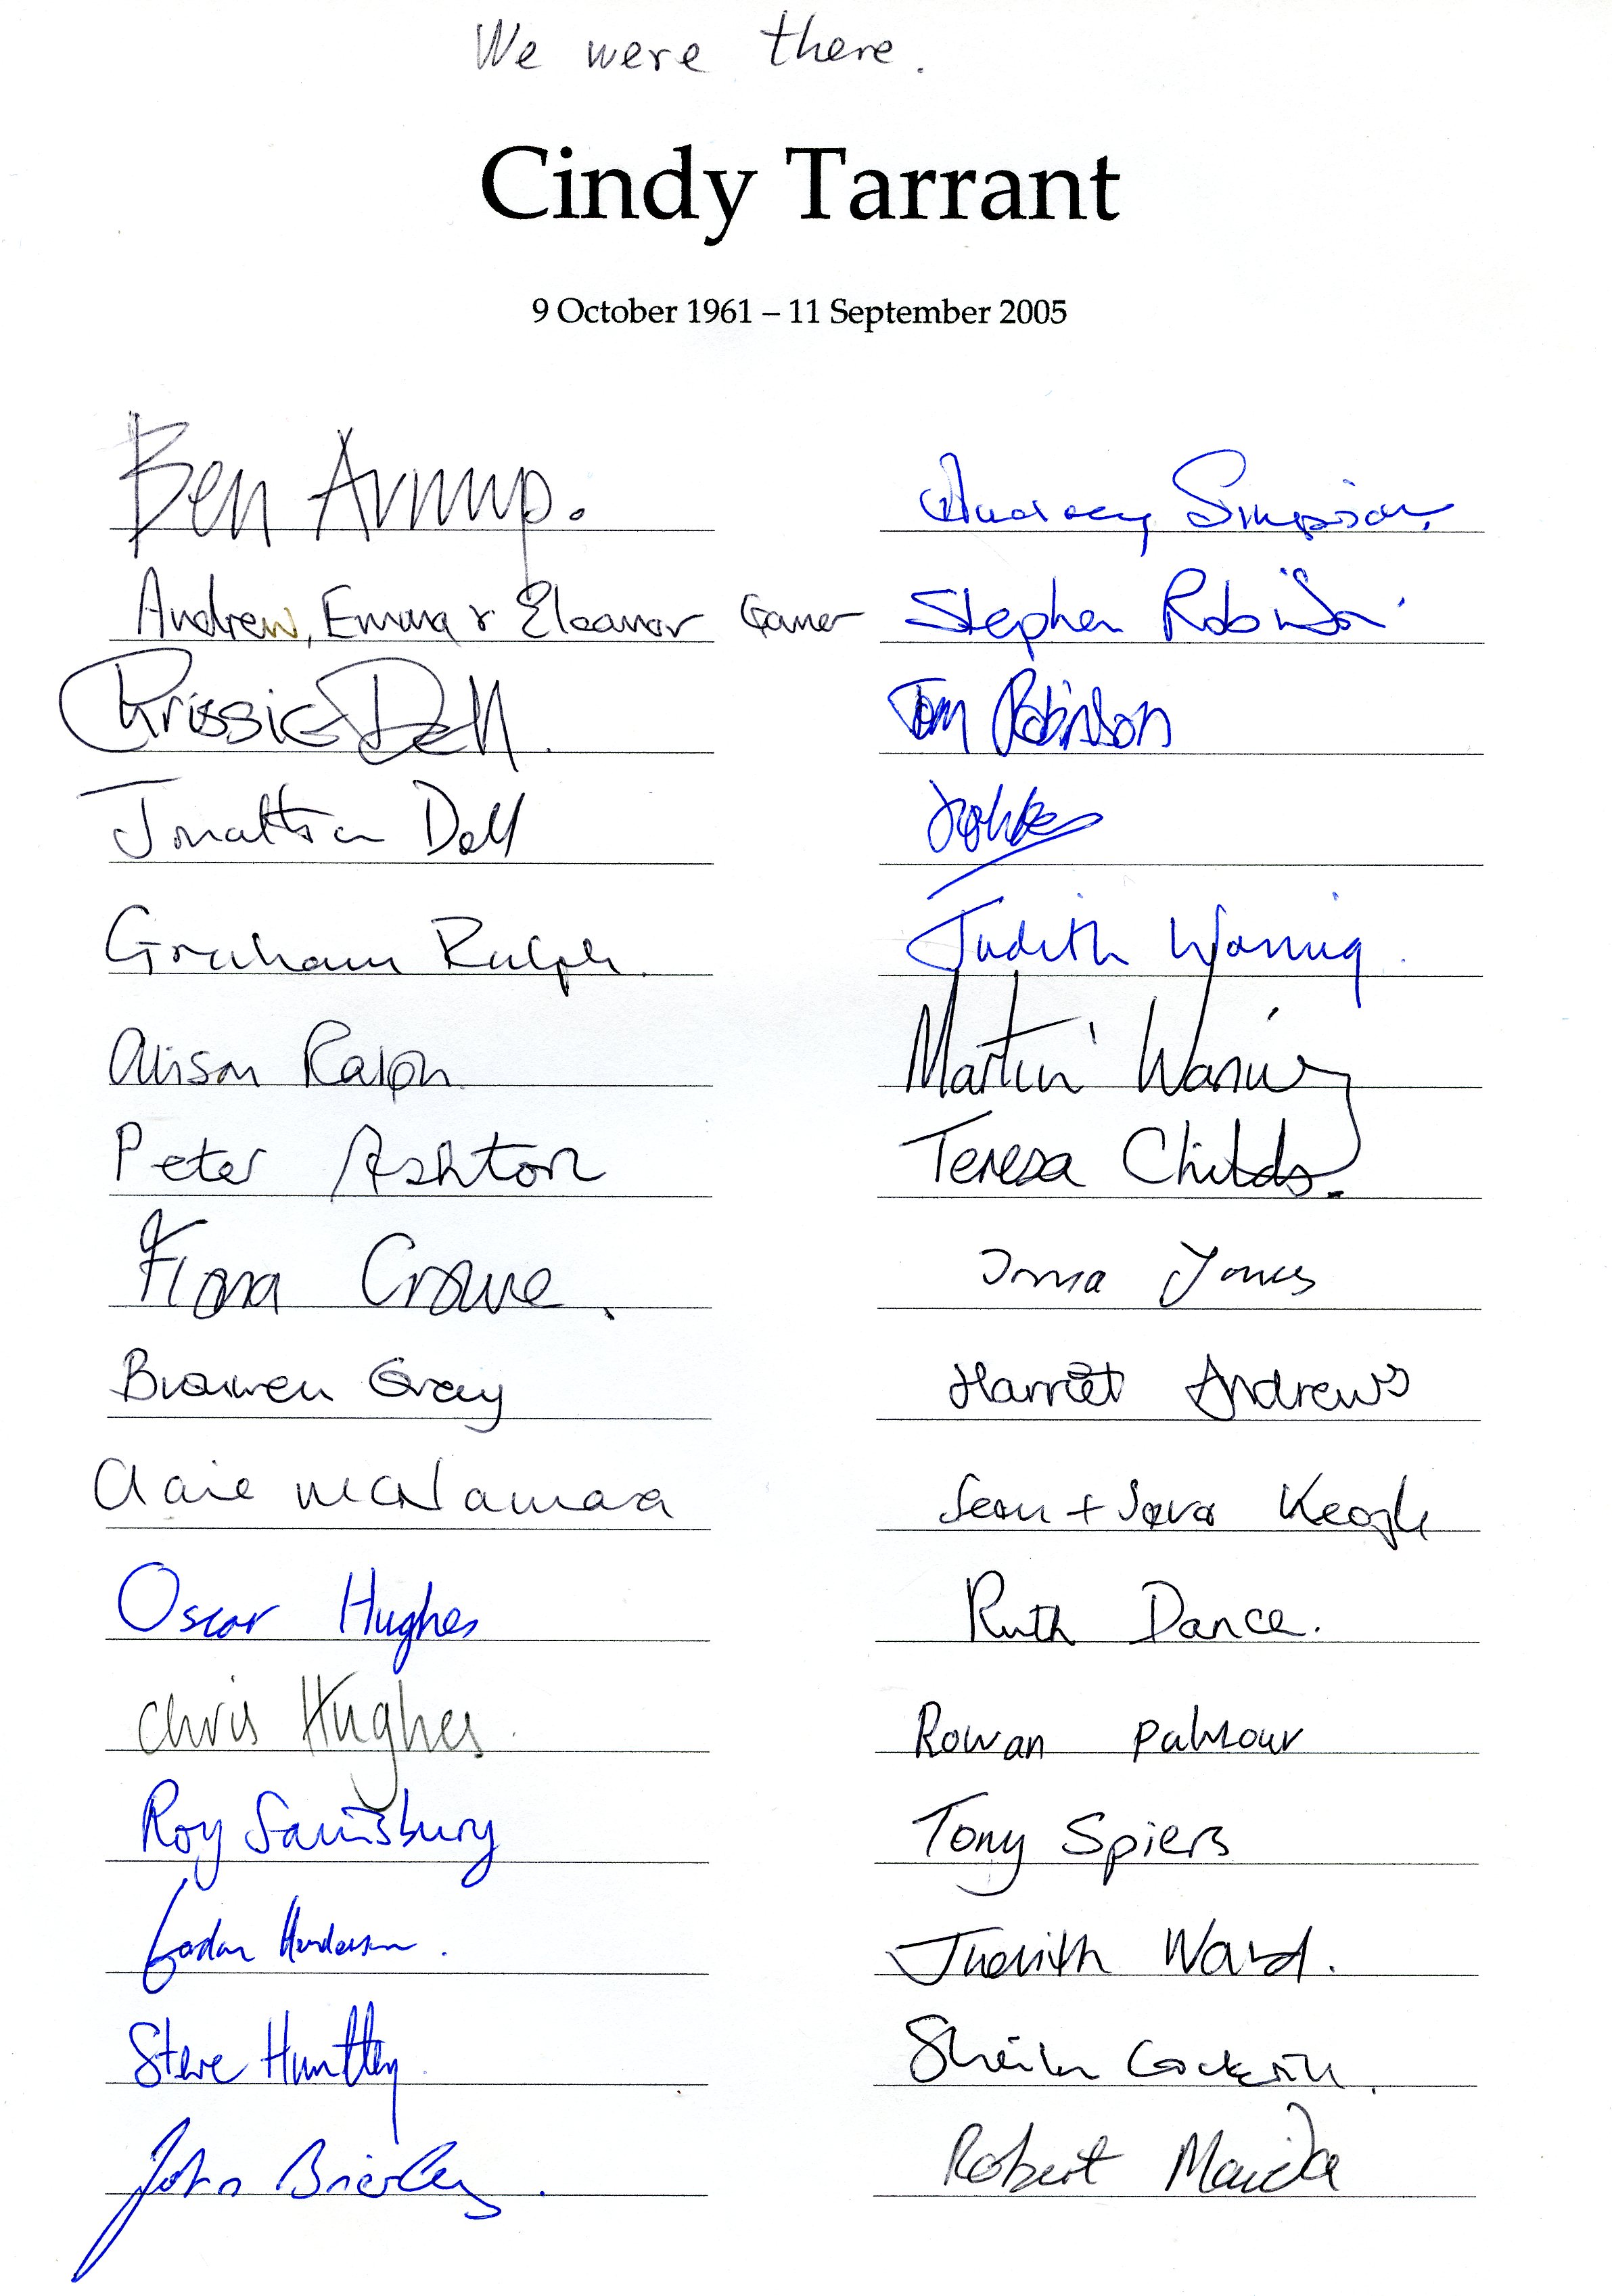 We were there.
Cindy Tarrant
9 October 1961 – 11 September 2005
Ben Arnup.
Andrew, Emma & Eleanor
Chrissie Dell.
Jonathan Dell
Graham Ralph.
Alison Ralph.
Peter Ashton
Fiona Crowe.
Bronwen Gray
Claire McNamara
Oscar Hughes
Chris Hughes.
Roy Sainsbury
Henderson.
Steve Huntley.
John Brierley.
Audrey Simpson.
Stephen Robinson
Tom Robinson
Judith Waring.
Martin Waring
Teresa Childs.
Jones
Harriet Andrews
Sean + Sara Keogh
Ruth Dance.
Rowan
Tony Spiers
Judith Ward.
Sheila
Robert